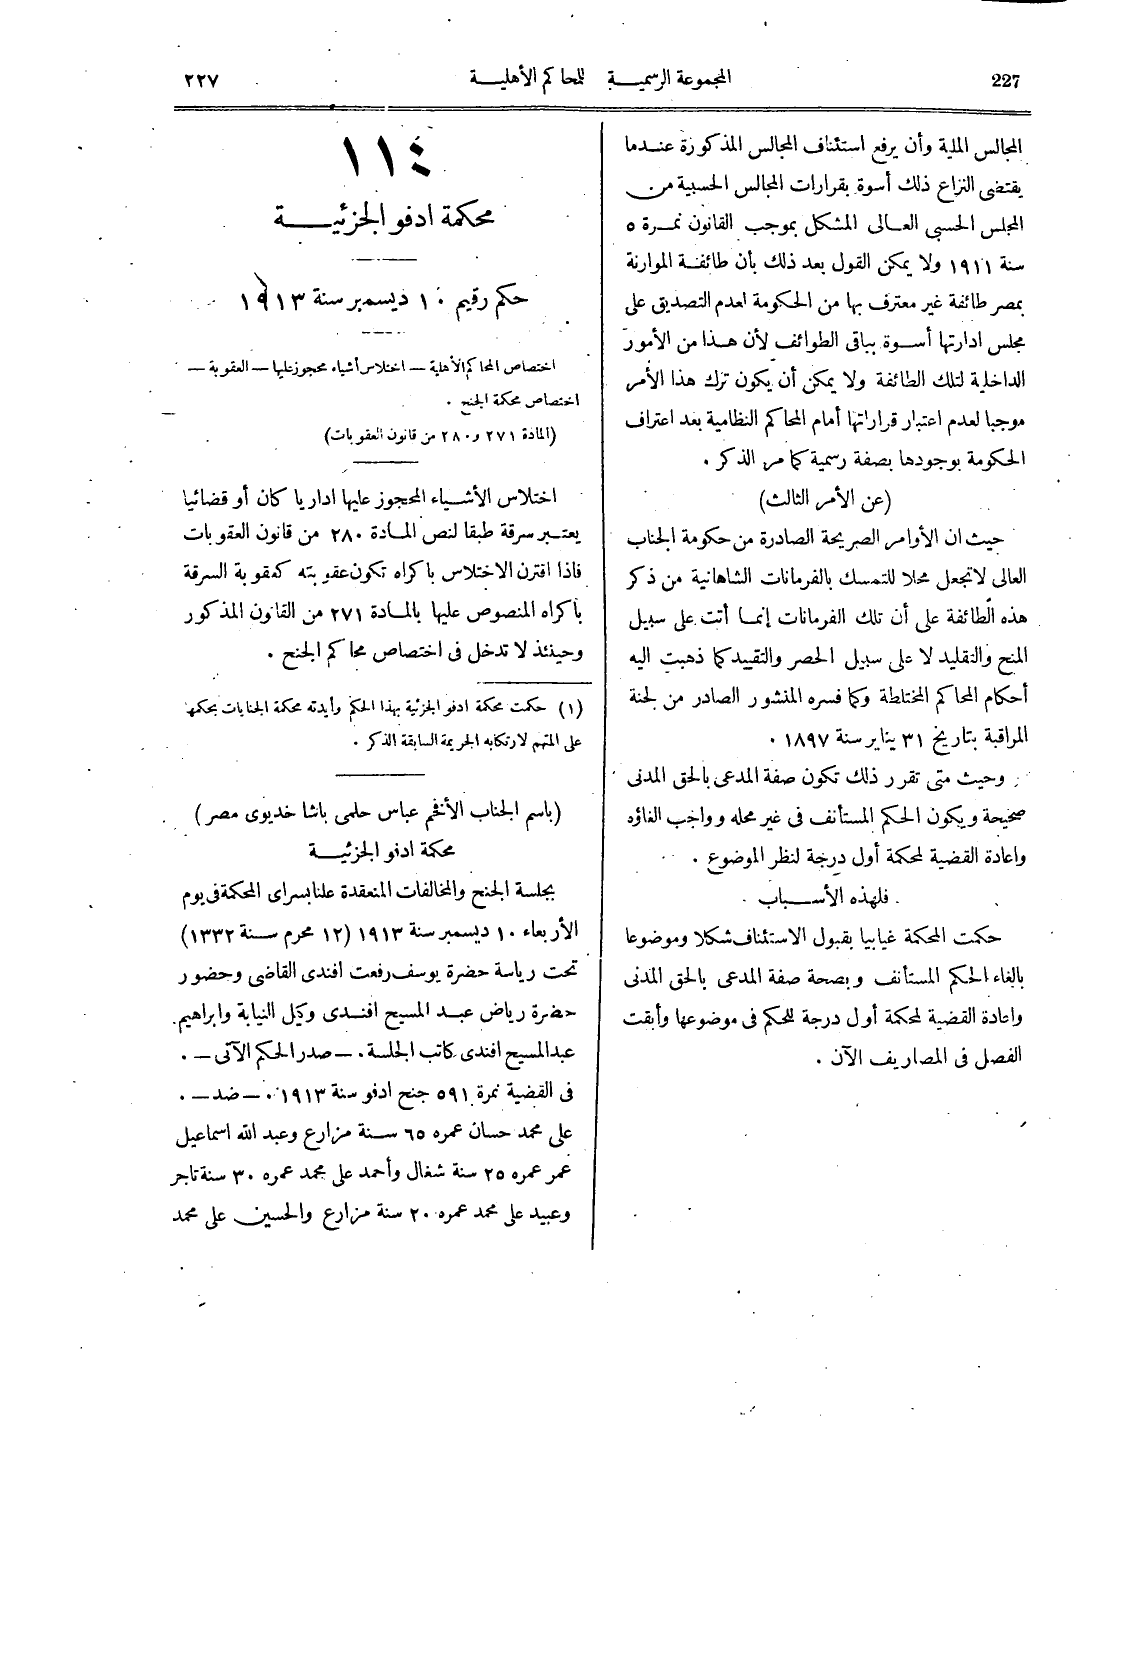 227 المجموعة الرسمية للمحاكم الأهلية ٢٢٧
المجالس الملية وأن يرفع استئناف المجالس المذكورة عندما
يقتضى النزاع ذلك أسوة بقرارات المجالس الحسبية من
المجلس الحسبى العالى المشكل بموجب القانون نمرة ٥
سنة ١٩١١ ولا يمكن القول بعد ذلك بأن طائفة الموارنة
بمصر طائفة غير معترف بها من الحكومة لعدم التصديق على
مجلس ادارتها أسوة بباقى الطوائف لأن هذا من الأمور
الداخلية لتلك الطائفة ولا يمكن أن يكون ترك هذا الأمر
موجبا لعدم اعتبار قراراتها أمام المحاكم النظامية بعد اعتراف
الحكومة بوجودها بصفة رسمية كما مر الذكر .
(عن الأمر الثالث)
حيث ان الأوامر الصريحة الصادرة من حكومة الجناب
العالى لا تجعل محلا للتمسك بالفرمانات الشاهانية من ذكر
هذه الطائفة على أن تلك الفرمانات إنما أتت على سبيل
المنح والتقليد لا على سبيل الحصر والتقييد كما ذهبت اليه
أحكام المحاكم المختلطة وكما فسره المنشور الصادر من لجنة
المراقبة بتاريخ ٣١ يناير سنة ١٨٩٧ .
وحيث متى تقرر ذلك تكون صفة المدعى بالحق المدنى
صحيحة ويكون الحكم المستأنف فى غير محله وواجب الغاؤه
واعادة القضية لمحكمة أول درجة لنظر الموضوع .
فلهذه الأسباب
حكمت المحكمة غيابيا بقبول الاستئناف شكلا وموضوعا
بالغاء الحكم المستأنف وبصحة صفة المدعى بالحق المدنى
واعادة القضية لمحكمة أول درجة للحكم فى موضوعها وأبقت
الفصل فى المصاريف الآن .
١١٤
محكمة ادفو الجزئية
حكم رقيم ١٠ ديسمبر سنة ١٩١٣
اختصاص المحاكم الأهلية — اختلاس أشياء محجوز عليها — العقوبة —
اختصاص محكمة الجنح .
(المادة ٢٧١ و٢٨٠ من قانون العقوبات)
اختلاس الأشياء المحجوز عليها اداريا كان أو قضائيا
يعتبر سرقة طبقا لنص المادة ٢٨٠ من قانون العقوبات
فاذا اقترن الاختلاس باكراه تكون عقوبته كعقوبة السرقة
باكراه المنصوص عليها بالمادة ٢٧١ من القانون المذكور
وحينئذ لا تدخل فى اختصاص محاكم الجنح .
(١) حكمت محكمة ادفو الجزئية بهذا الحكم وأيدته محكمة الجنايات بحكمها
على المتهم لارتكابه الجريمة السابقة الذكر .
(باسم الجناب الأفخم عباس حلمى باشا خديوى مصر)
محكمة ادفو الجزئية
بجلسة الجنح والمخالفات المنعقدة علنا بسراى المحكمة فى يوم
الأربعاء ١٠ ديسمبر سنة ١٩١٣ (١٢ محرم سنة ١٣٣٢)
تحت رياسة حضرة يوسف رفعت افندى القاضى وحضور
حضرة رياض عبد المسيح افندى وكيل النيابة وابراهيم
عبدالمسيح افندى كاتب الجلسة . — صدر الحكم الآتى — .
فى القضية نمرة ٥٩١ جنح ادفو سنة ١٩١٣ . — ضد — .
على محمد حسان عمره ٦٥ سنة مزارع وعبد الله اسماعيل
عمر عمره ٢٥ سنة شغال وأحمد على محمد عمره ٣٠ سنة تاجر
وعبيد على محمد عمره ٢٠ سنة مزارع والحسين على محمد